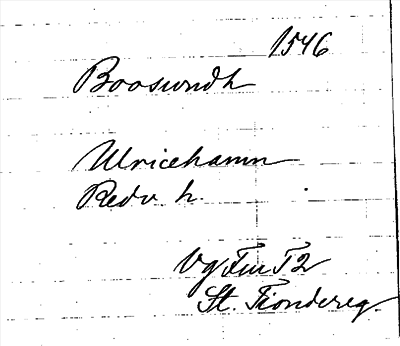 1546
Boosundh
Ulricehamn
Redv h.
Vg Fiu F2
St. Tiondereg.